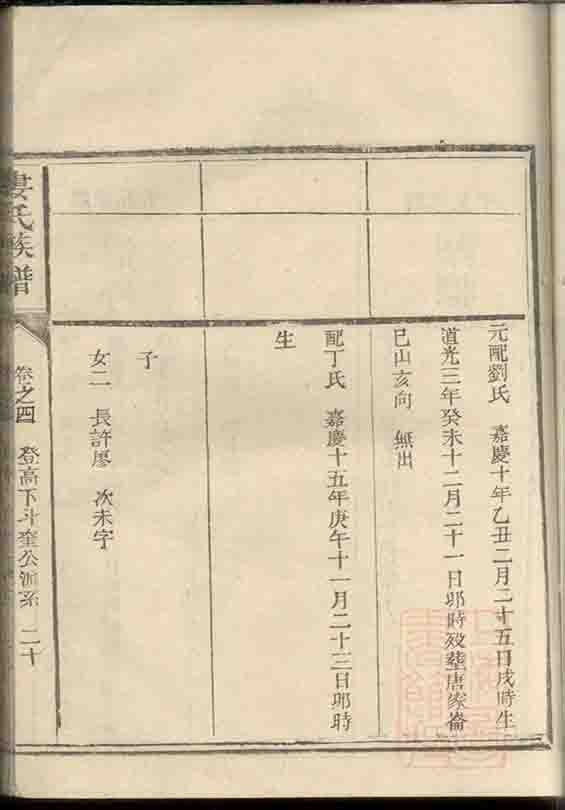 元配劉氏　嘉慶十年乙丑二月二十五日戌時生
道光三年癸未十二月二十一日卯時歿塟唐家崙
巳山亥向　無出
配丁氏　嘉慶十五年庚午十一月二十三日卯時
生
子
女二　長許廖　次未字
婁氏族譜
卷之四　登高下斗奎公派系　二十